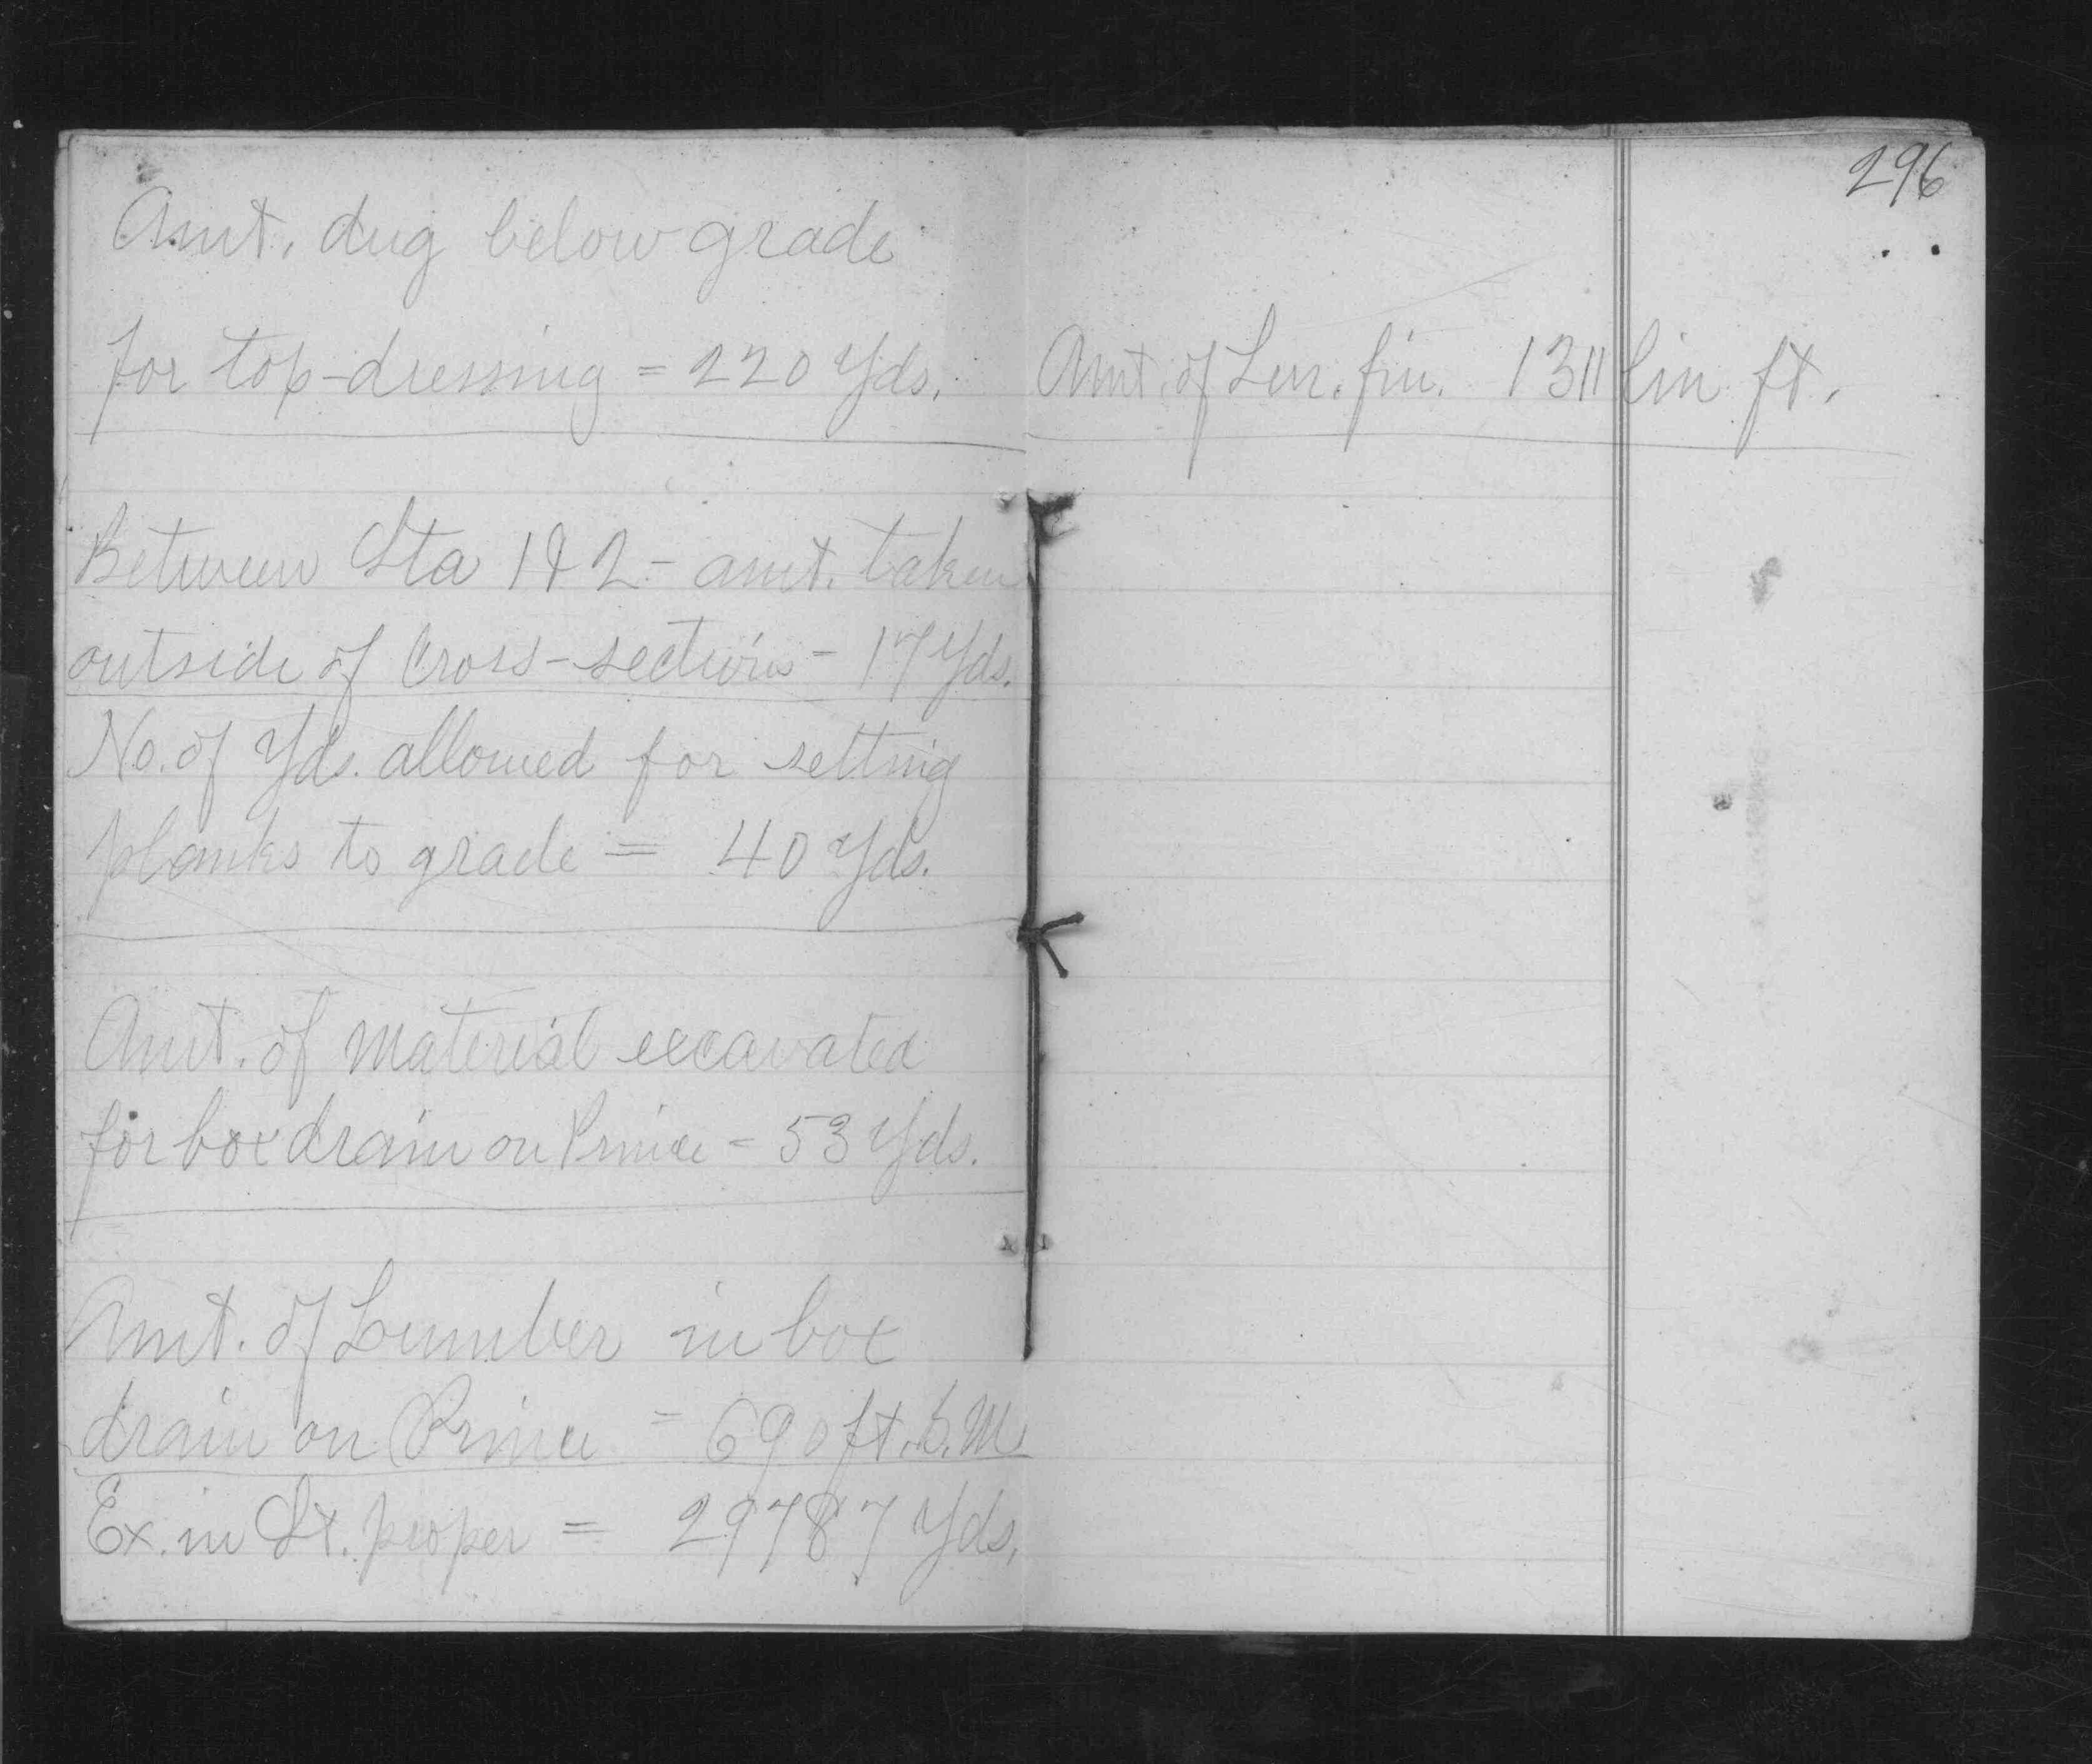 Amt. dug below grade
for top-dressing = 220 Yds.
Between Sta 1 & 2 - amt. taken
outside of cross-sections - 17 Yds.
No. of Yds. allowed for setting
planks to grade = 40 Yds.
Amt. of material excavated
for box drain on Prince - 53 Yds.
Amt. of Lumber in box
drain on Prince = 690 ft. b. M
Ex. in St. proper = 29787 Yds.
296
Amt. of Lum. fin. 1311 lin ft.